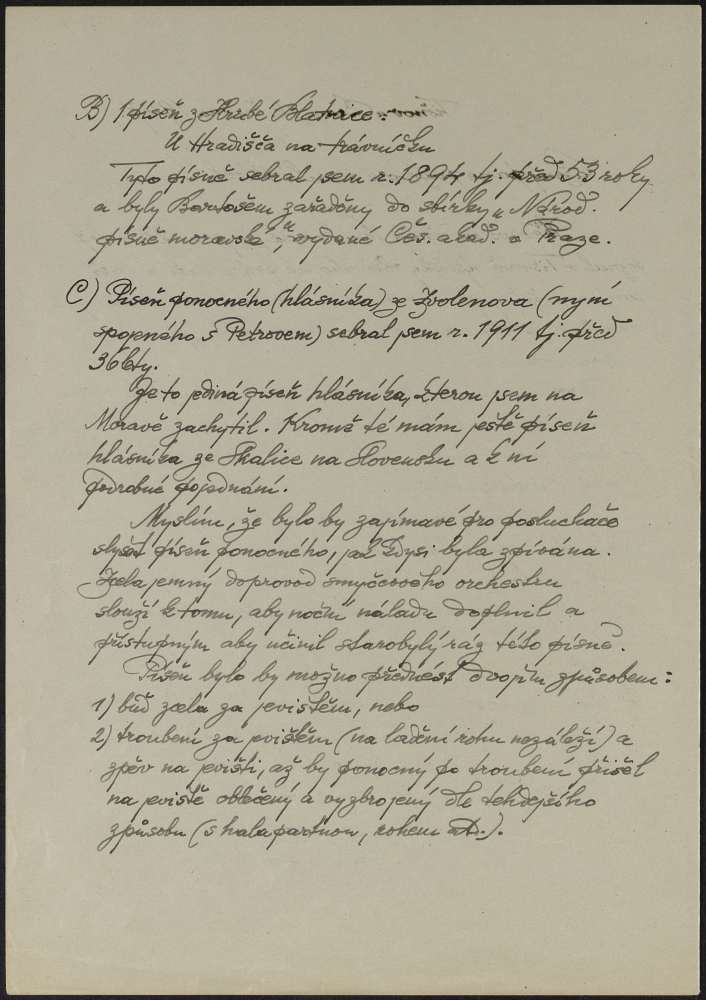 B) 1 píseň z Hrubé Blatnice:
U Hradišťa na trávníčku
Tyto písně sebral jsem r. 1894 tj. před 53 roky
a byly Bartošem zařaděny do sbírky „Národ.
písně moravské", vydané Čes. akad. v Praze.
C) Píseň ponocného (hlásníka) ze Zvolenova (nyní
spojeného s Petrovem) sebral jsem r. 1911 tj. před
36 lety.
Je to jediná píseň hlásníka, kterou jsem na
Moravě zachytil. Kromě té mám ještě píseň
hlásníka ze Skalice na Slovensku a k ní
podrobné pojednání.
Myslím, že bylo by zajímavé pro posluchače
slyšet píseň ponocného, jak kdysi byla zpívána.
Zcela jemný doprovod smyčcového orchestru
slouží k tomu, aby noční náladu doplnil a
přístupným aby učinil starobylý ráz této písně.
Píseň bylo by možno přednést dvojím způsobem:
1) buď zcela za jevištěm, nebo
2) troubení za jevištěm (na ladění rohu nezáleží) a
zpěv na jevišti, až by ponocný po troubení přišel
na jeviště oblečený a vyzbrojený dle tehdejšího
způsobu (s halapartnou, rohem atd.).